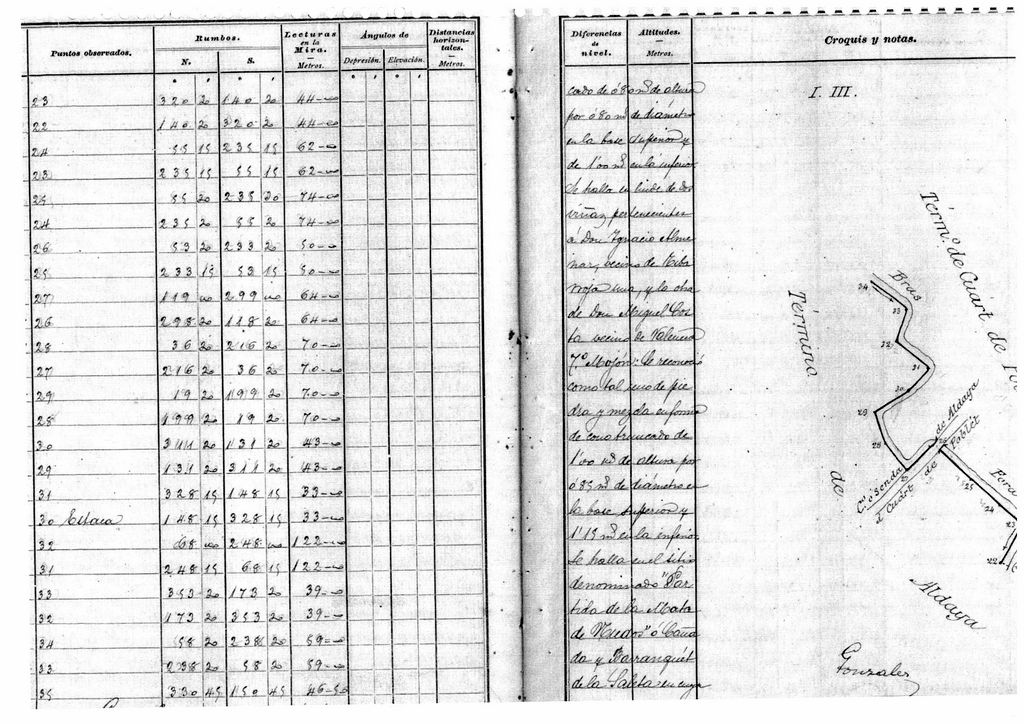 Puntos observados. Rumbos. Lecturas en la Mira. Ángulos de Distancias horizontales.
N. S. Metros. Depresión. Elevación. Metros.
° ′ ° ′ ° ′ ° ′
23 320 20 140 20 44-00
22 140 20 320 20 44-00
24 55 15 235 15 62-00
23 235 15 55 15 62-00
25 55 20 235 20 74-00
24 235 20 55 20 74-00
26 53 20 233 20 50-00
25 233 15 53 15 50-00
27 119 00 299 00 64-00
26 298 20 118 20 64-00
28 36 20 216 20 70-00
27 216 20 36 20 70-00
29 19 20 199 20 70-00
28 199 20 19 20 70-00
30 311 20 131 20 43-00
29 131 20 311 20 43-00
31 328 15 148 15 33-00
30 Estaca 148 15 328 15 33-00
32 68 00 248 00 122-00
31 248 15 68 15 122-00
33 353 20 173 20 39-00
32 173 20 353 20 39-00
34 58 20 238 20 59-00
33 238 20 58 20 59-00
35 330 45 150 45 46-50
Diferencias de nivel. Altitudes. Croquis y notas.
Metros.
cado de 0'80 m de altura
por 0'80 m de diámetro
en la base superior y
de 1'00 m en la inferior
Se halla en linde de dos
viñas, pertenecientes
á Don Ignacio Alme
nar, vecino de Riba
rroja una, y la otra
de Don Miguel Cos
ta vecino de Valencia
7.º Mojón: Se reconoció
como tal uno de pie
dra y mezcla en forma
de cono truncado de
1'00 m de altura por
0'85 m de diámetro en
la base superior y
1'15 m en la inferior
Se halla en el sitio
denominado "Par
tida de la Mata
de Nuedos" ó Caña
da y Barranquet
de la Saleta en cuya
I. III.
Térm.º de Cuart de Po
Término
de
Aldaya
Bras
34
33
32
31
30
29
28
26
25
24
23
22
C.º ó Senda de Aldaya
á Cuart de Poblet
Fora
Gonzales